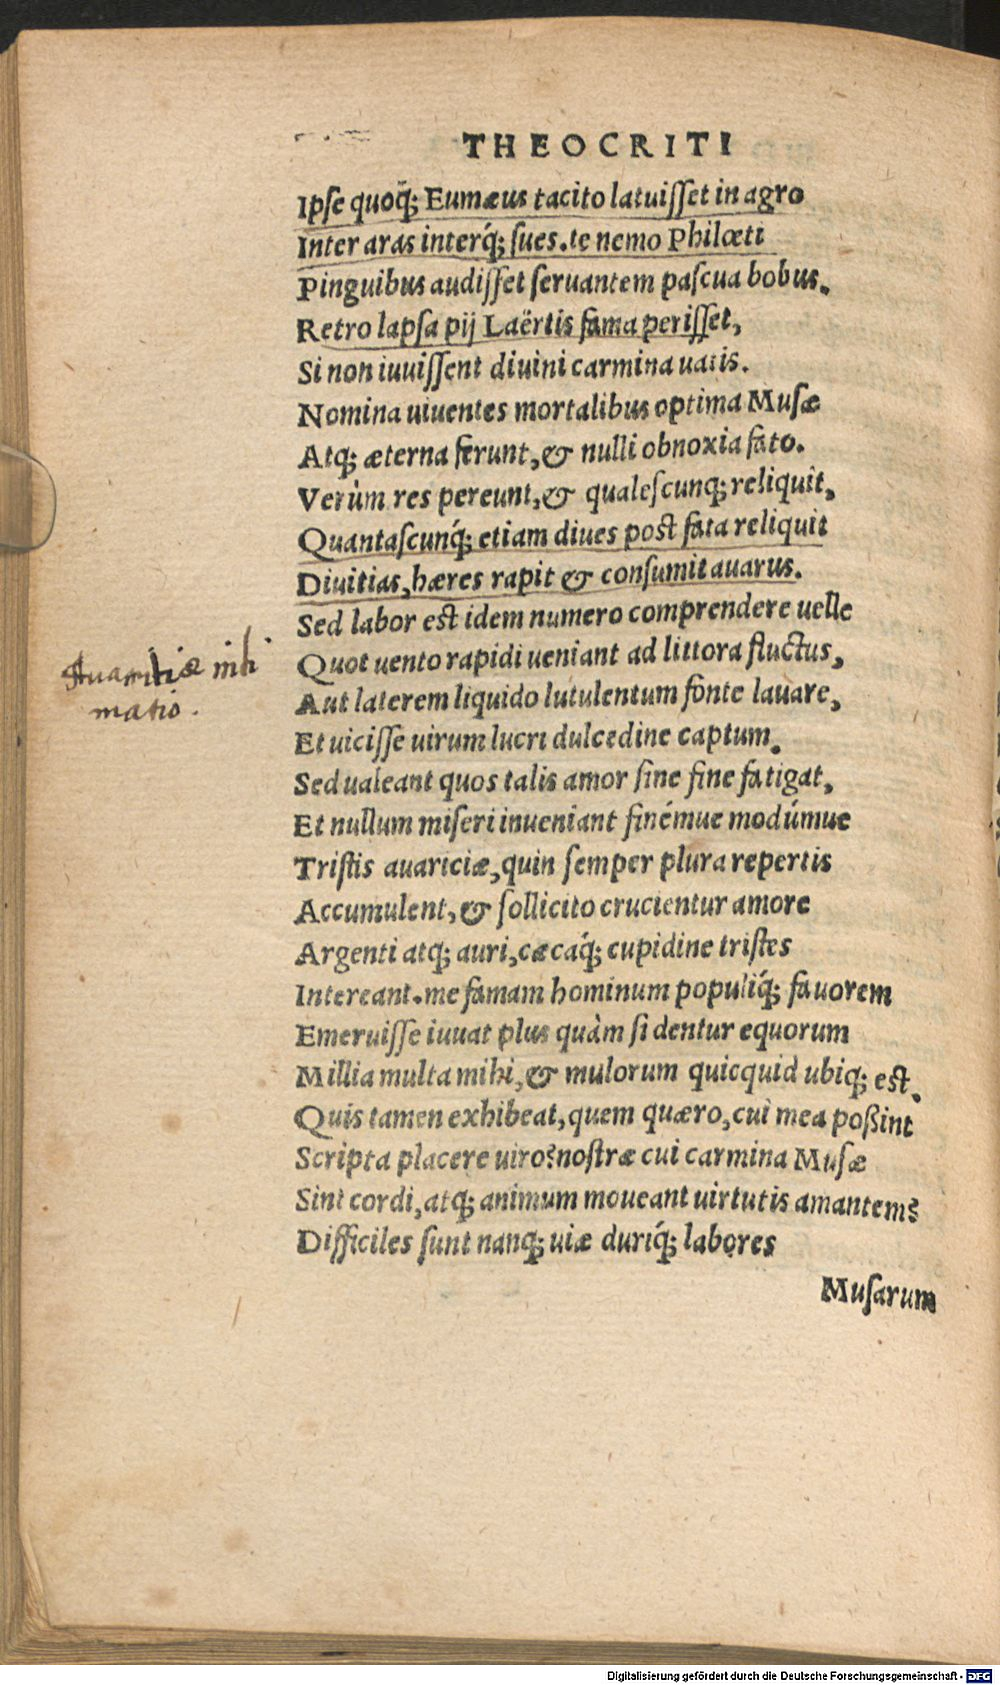 THEOCRITI
Ipse quoq̃; Eumæus tacito latuisset in agro
Inter aras interq́; sues. te nemo Philœti
Pinguibus audisset seruantem pascua bobus.
Retro lapsa pij Laërtis fama perisset,
Si non iuuissent diuini carmina uatis.
Nomina uiuentes mortalibus optima Musæ
Atq; æterna ferunt, & nulli obnoxia fato.
Verùm res pereunt, & qualescunq; reliquit,
Quantascunq́; etiam diues post fata reliquit
Diuitias, hæres rapit & consumit auarus.
Sed labor est idem numero comprendere uelle
Quot uento rapidi ueniant ad littora fluctus,
Aut laterem liquido lutulentum fonte lauare,
Et uicisse uirum lucri dulcedine captum.
Sed ualeant quos talis amor sine fine fatigat,
Et nullum miseri inueniant finémue modúmue
Tristis auariciæ, quin semper plura repertis
Accumulent, & sollicito crucientur amore
Argenti atq; auri, cæcaq́; cupidine tristes
Intereant. me famam hominum populiq́; fauorem
Emeruisse iuuat plus quàm si dentur equorum
Millia multa mihi, & mulorum quicquid ubiq; est.
Quis tamen exhibeat, quem quæro, cui mea poßint
Scripta placere uiro? nostræ cui carmina Musæ
Sint cordi, atq; animum moueant uirtutis amantem?
Difficiles sunt nanq; uiæ duriq́; labores
Musarum
Auaritiæ
matio.
Digitalisierung gefördert durch die Deutsche Forschungsgemeinschaft - DFG